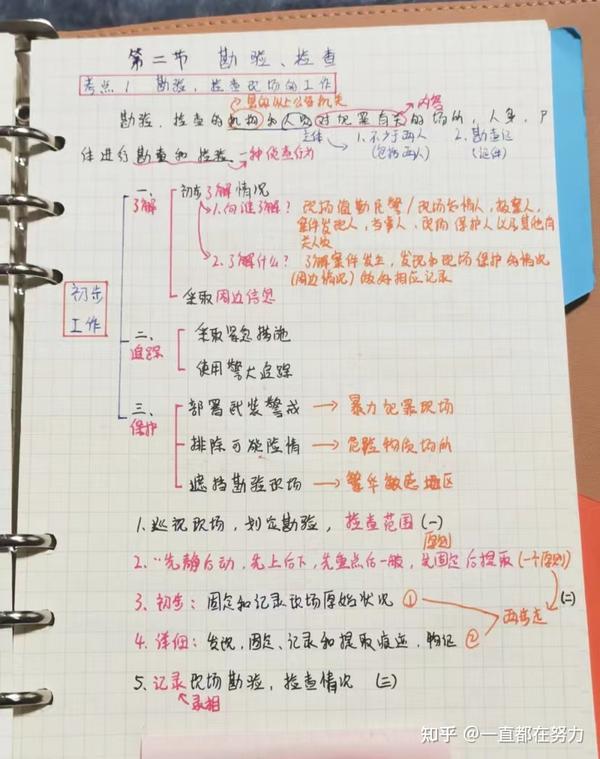 第二节 勘验、检查
考点1 勘验、检查现场的工作
县的以上公安机关
内容
勘验、检查的机构和人员对犯罪有关的场所,人身,尸
主体 1.不少于两人 2.勘查证
(包括两人) (证件)
体进行勘查和检验 一种侦查行为
初步工作
一、了解
初步了解情况
1.向谁了解? 现场值勤民警/现场知情人,报案人,
案件发现人,当事人,现场保护人以及其他有
关人员
2.了解什么? 了解案件发生,发现和现场保护的情况
(周边情况)做好相应记录
采取周边信息
二、追踪
采取紧急措施
使用警犬追踪
三、保护
部署武装警戒 → 暴力犯罪现场
排除可能险情 → 危险物质场所
遮挡勘验现场 → 繁华敏感地区
1.巡视现场,划定勘验,检查范围 (一)
原则
2."先静后动,先上后下,先重点后一般,先固定后提取(一个原则)
3.初步:固定和记录现场原始状况 ① 两步走 (二)
4.详细:发现,固定、记录和提取痕迹,物证 ②
5.记录现场勘验,检查情况 (三)
录相
知乎 @一直都在努力